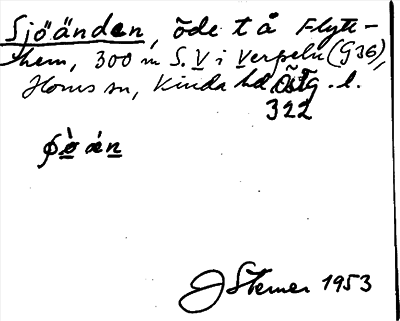 Sjöänden, öde t å Flytt-
hem, 300 m S.V i Verpeln (G 36),
Horns sn, Kinda hd Östg. l.
322
J Sterner 1953